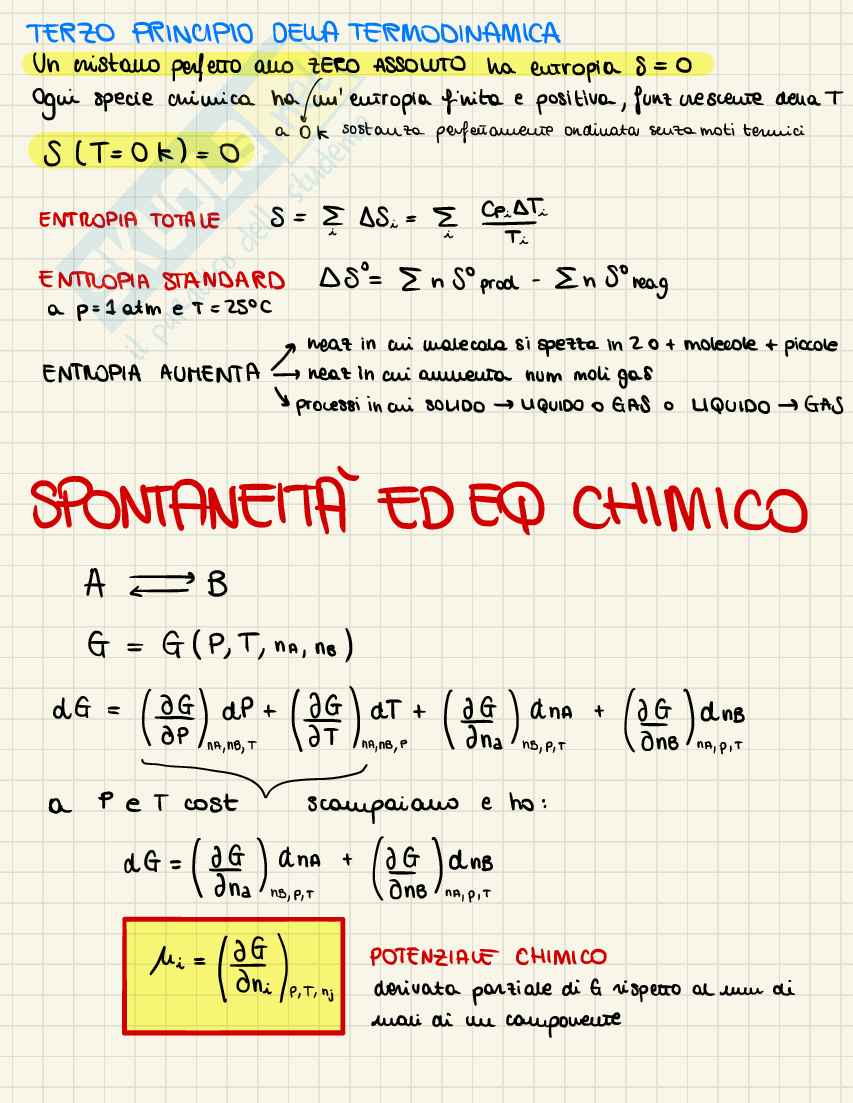 TERZO PRINCIPIO DELLA TERMODINAMICA
Un cristallo perfetto allo ZERO ASSOLUTO ha entropia S = 0
Ogni specie chimica ha un'entropia finita e positiva, funz crescente della T
a 0 K sostanza perfettamente ordinata senza moti termici
S (T = 0 K) = 0
ENTROPIA TOTALE S = Σ_i ΔS_i = Σ_i Cp_i ΔT_i / T_i
ENTROPIA STANDARD ΔS° = Σ n S° prod - Σ n S° reag
a p = 1 atm e T = 25°C
ENTROPIA AUMENTA
→ reaz in cui molecola si spezza in 2 o + molecole + piccole
→ reaz in cui aumenta num moli gas
→ processi in cui SOLIDO → LIQUIDO o GAS o LIQUIDO → GAS
SPONTANEITÀ ED EQ CHIMICO
A ⇌ B
G = G (P, T, nA, nB)
dG = (∂G/∂P)_{nA,nB,T} dP + (∂G/∂T)_{nA,nB,P} dT + (∂G/∂na)_{nB,P,T} dnA + (∂G/∂nB)_{nA,P,T} dnB
a P e T cost scompaiono e ho:
dG = (∂G/∂na)_{nB,P,T} dnA + (∂G/∂nB)_{nA,P,T} dnB
μi = (∂G/∂ni)_{P,T,nj}
POTENZIALE CHIMICO
derivata parziale di G rispetto al num di
moli di un componente